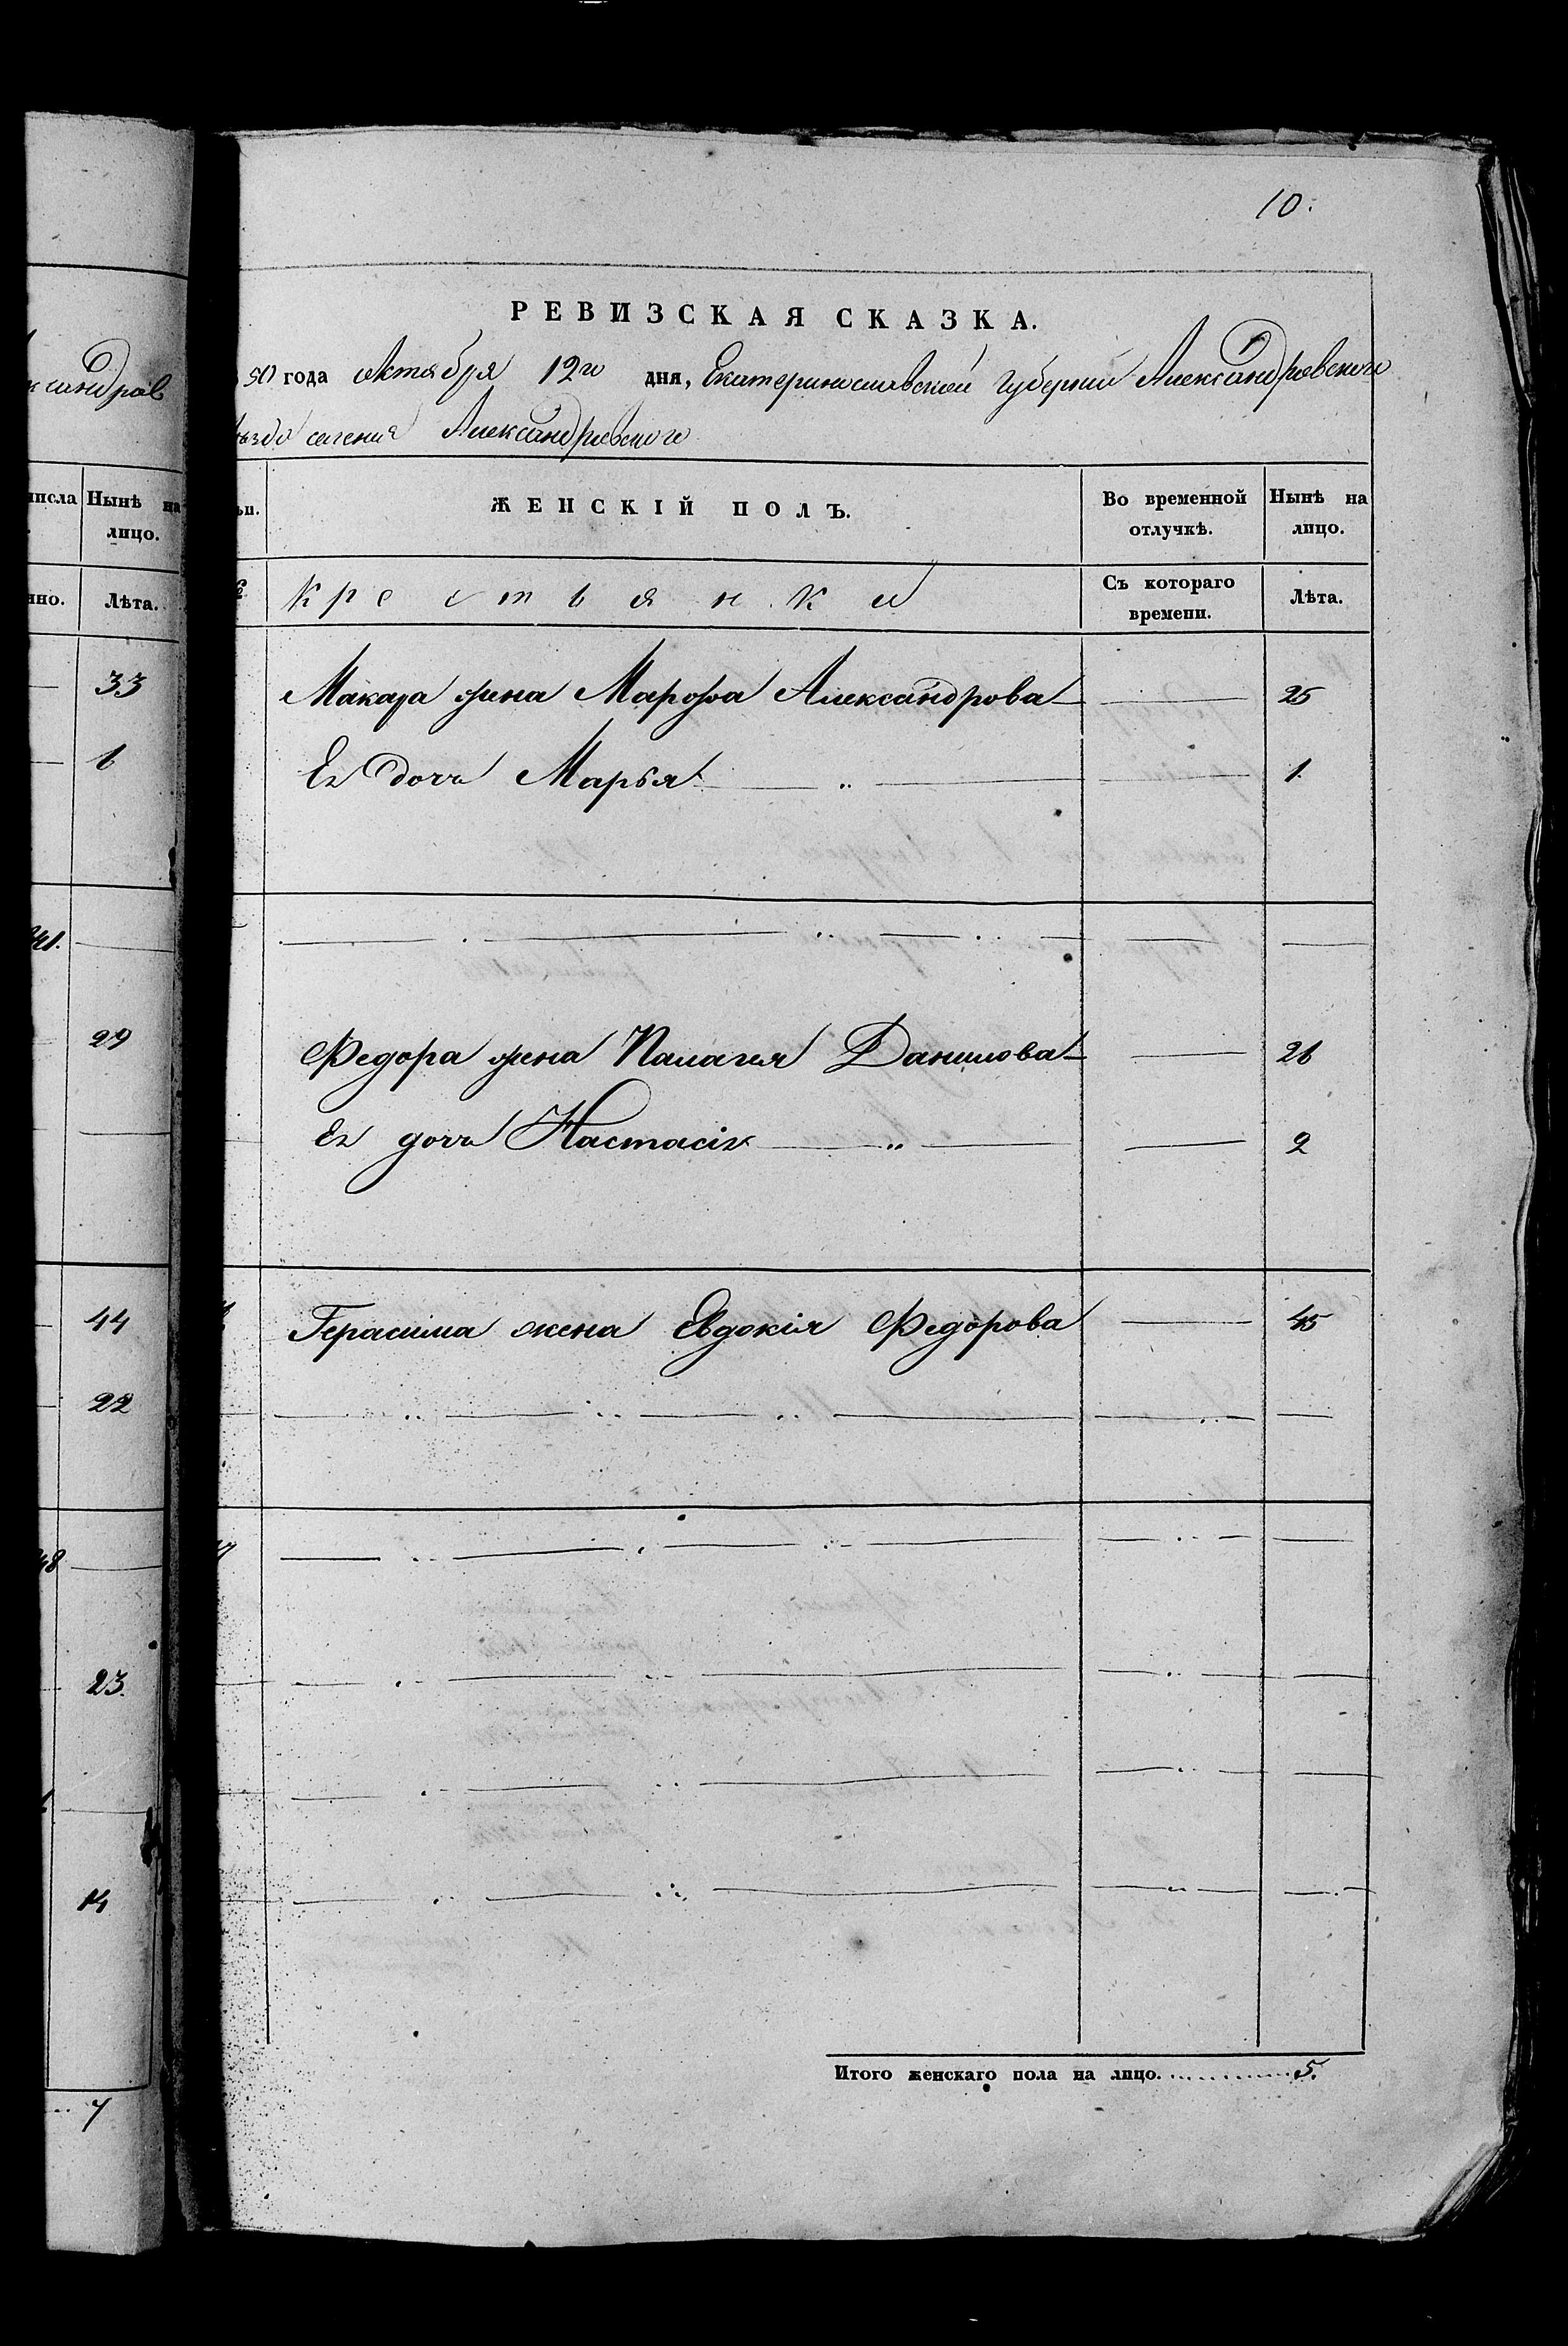 ксандров
числа Нынѣ на
лицо.
нно. Лѣта.
33
1
29
44
22
48
23.
14
7
10.
РЕВИЗСКАЯ СКАЗКА.
50 года октября 12го дня, Екатеринославской губернии Александровского
ѣзда селения Александровского
ЖЕНСКІЙ ПОЛЪ.
Во временной отлучкѣ.
Нынѣ на лицо.
Крестьянки
Съ котораго времени.
Лѣта.
Макара жена Марфа Александрова — 25
Ея дочь Марья — 1.
Федора жена Палагея Данилова — 26
Ея дочь Настасія — 2
Герасима жена Евдокія Федорова — 45
Итого женскаго пола на лицо. 5.